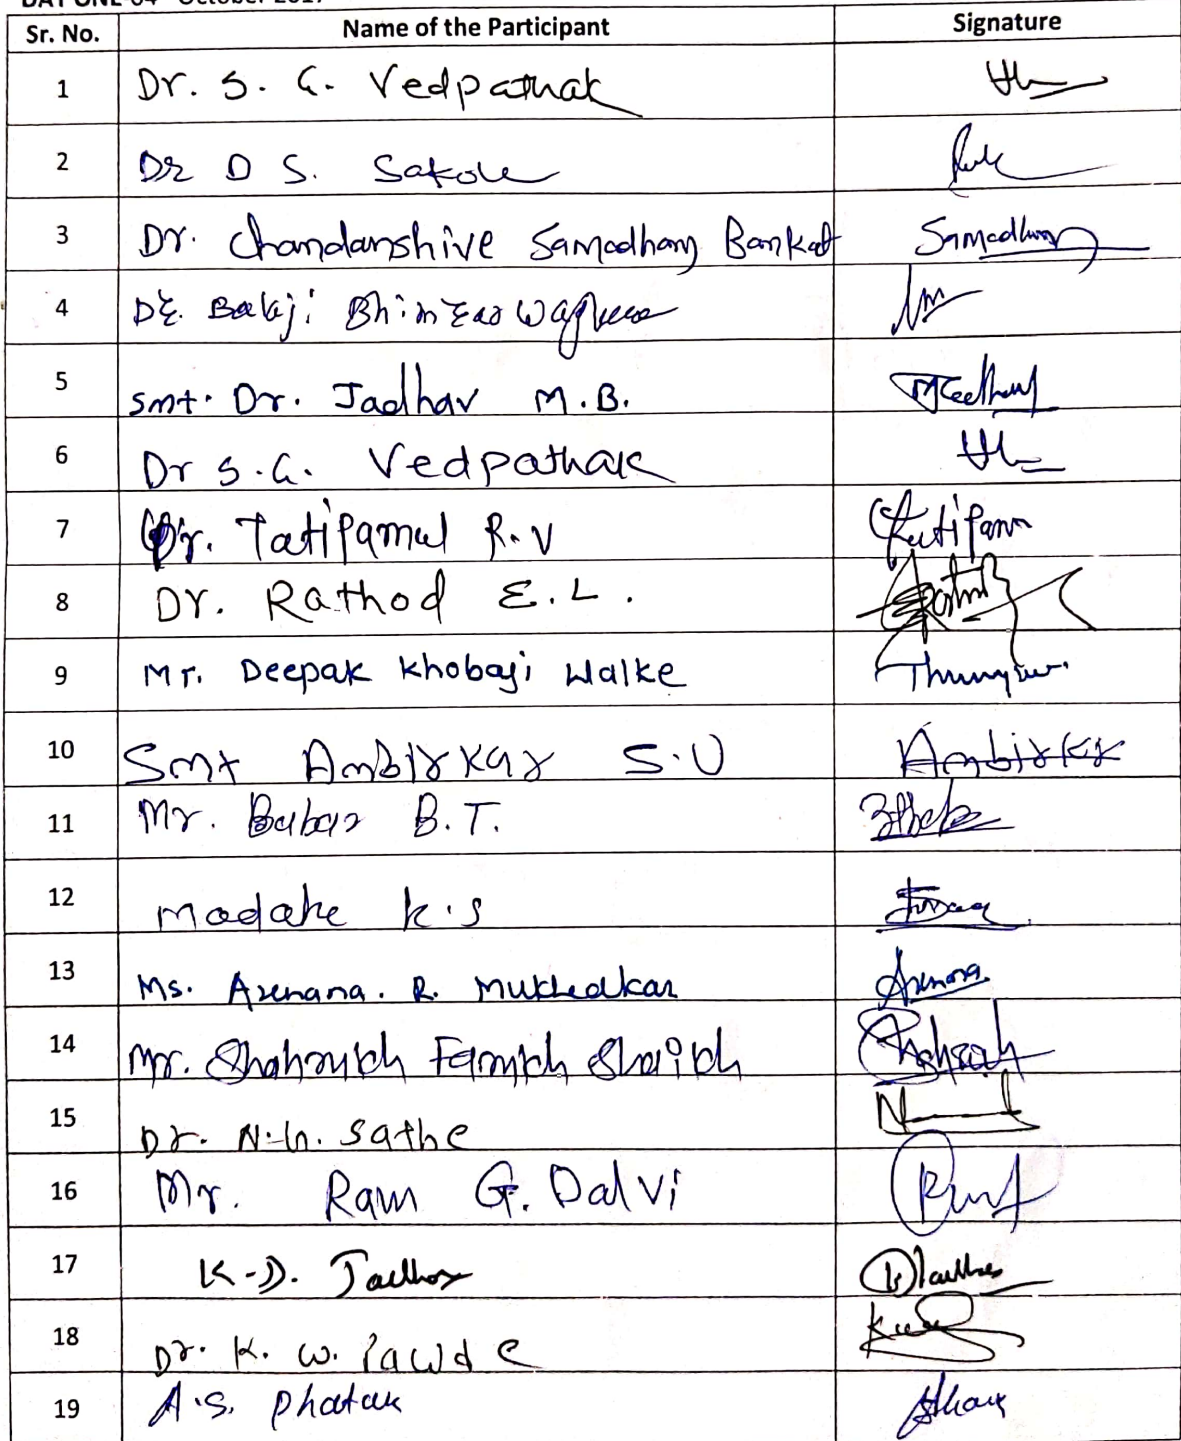 DAY ONE 04 October 2017
Sr. No. Name of the Participant Signature
1 Dr. S. G. Vedpathak
2 Dr D S. Sakole
3 Dr. Chandanshive Samadhan Bankat Samadhan
4 Dr. Balaji Bhimrao Waghmare
5 Smt. Dr. Jadhav M.B.
6 Dr S.G. Vedpathak
7 Dr. Tatipamul R.V
8 Dr. Rathod E.L.
9 Mr. Deepak Khobaji Walke
10 Smt Ambirkar S.U Ambirkar
11 Mr. Babar B.T.
12 Madake K.S
13 Ms. Archana. R. Mukhedkar Archana
14 Mr. Shahrukh Farukh Shaikh
15 Dr. N.h. Sathe
16 Mr. Ram G. Dalvi
17 K.D. Jadhav
18 Dr. K. W. Pawde
19 A.S. Phatak